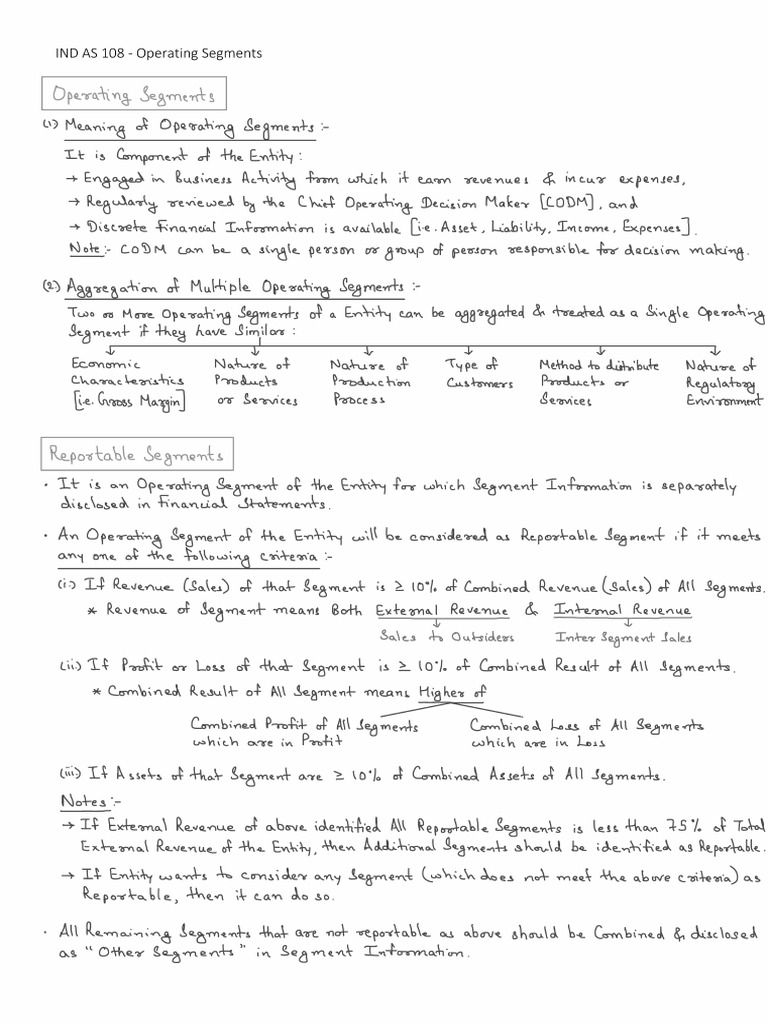 IND AS 108 - Operating Segments
Operating Segments
(1) Meaning of Operating Segments :-
It is Component of the Entity :
→ Engaged in Business Activity from which it earn revenues & incur expenses,
→ Regularly reviewed by the Chief Operating Decision Maker [CODM], and
→ Discrete Financial Information is available [i.e. Asset, Liability, Income, Expenses].
Note :- CODM can be a single person or group of person responsible for decision making.
(2) Aggregation of Multiple Operating Segments :-
Two or More Operating Segments of a Entity can be aggregated & treated as a Single Operating
Segment if they have Similar :
Economic
Characteristics
[i.e. Gross Margin]
Nature of
Products
or Services
Nature of
Production
Process
Type of
Customers
Method to distribute
Products or
Services
Nature of
Regulatory
Environment
Reportable Segments
• It is an Operating Segment of the Entity for which Segment Information is separately
disclosed in Financial Statements.
• An Operating Segment of the Entity will be considered as Reportable Segment if it meets
any one of the following criteria :-
(i.) If Revenue (Sales) of that Segment is ≥ 10% of Combined Revenue (Sales) of All Segments.
* Revenue of Segment means Both External Revenue & Internal Revenue
Sales to Outsiders
Inter Segment Sales
(ii.) If Profit or Loss of that Segment is ≥ 10% of Combined Result of All Segments.
* Combined Result of All Segment means Higher of
Combined Profit of All Segments
which are in Profit
Combined Loss of All Segments
which are in Loss
(iii) If Assets of that Segment are ≥ 10% of Combined Assets of All Segments.
Notes :-
→ If External Revenue of above identified All Reportable Segments is less than 75% of Total
External Revenue of the Entity, then Additional Segments should be identified as Reportable.
→ If Entity wants to consider any Segment (which does not meet the above criteria) as
Reportable, then it can do so.
• All Remaining Segments that are not reportable as above should be Combined & disclosed
as "Other Segments" in Segment Information.